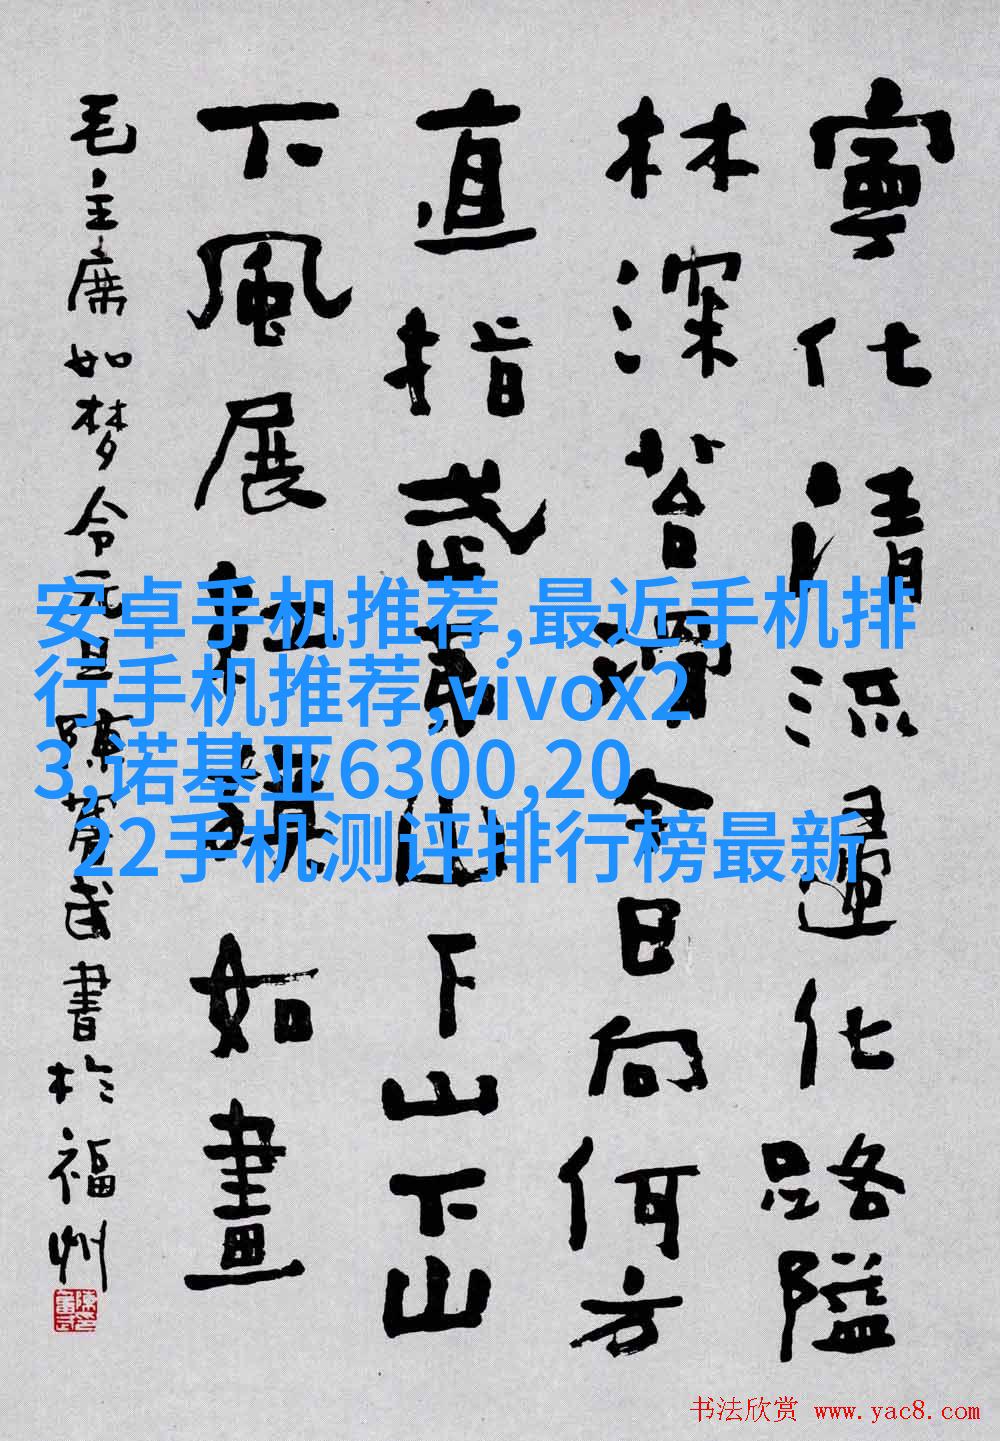 寧化清流歸化路隘
林深苔滑今日向何方
直指武夷山下山下山
下風展紅旗如畫
毛主席如梦令元旦陳奮武書於福州
安卓手机推荐,最近手机排
行手机推荐,vivox2
3,诺基亚6300,20
22手机测评排行榜最新
书法欣赏 www.yac8.com